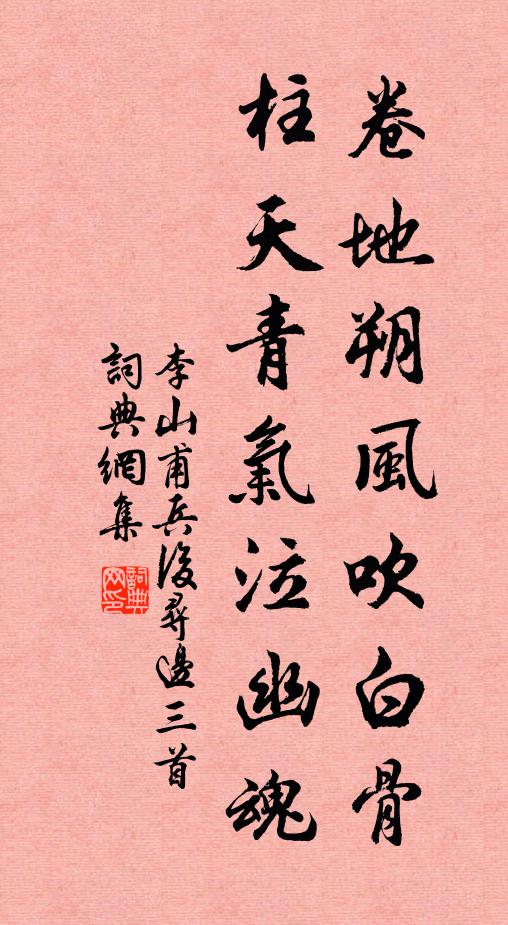 卷地朔風吹白骨
柱天青氣泣幽魂
李山甫兵後尋邊三首
詞典網集
詞典网印